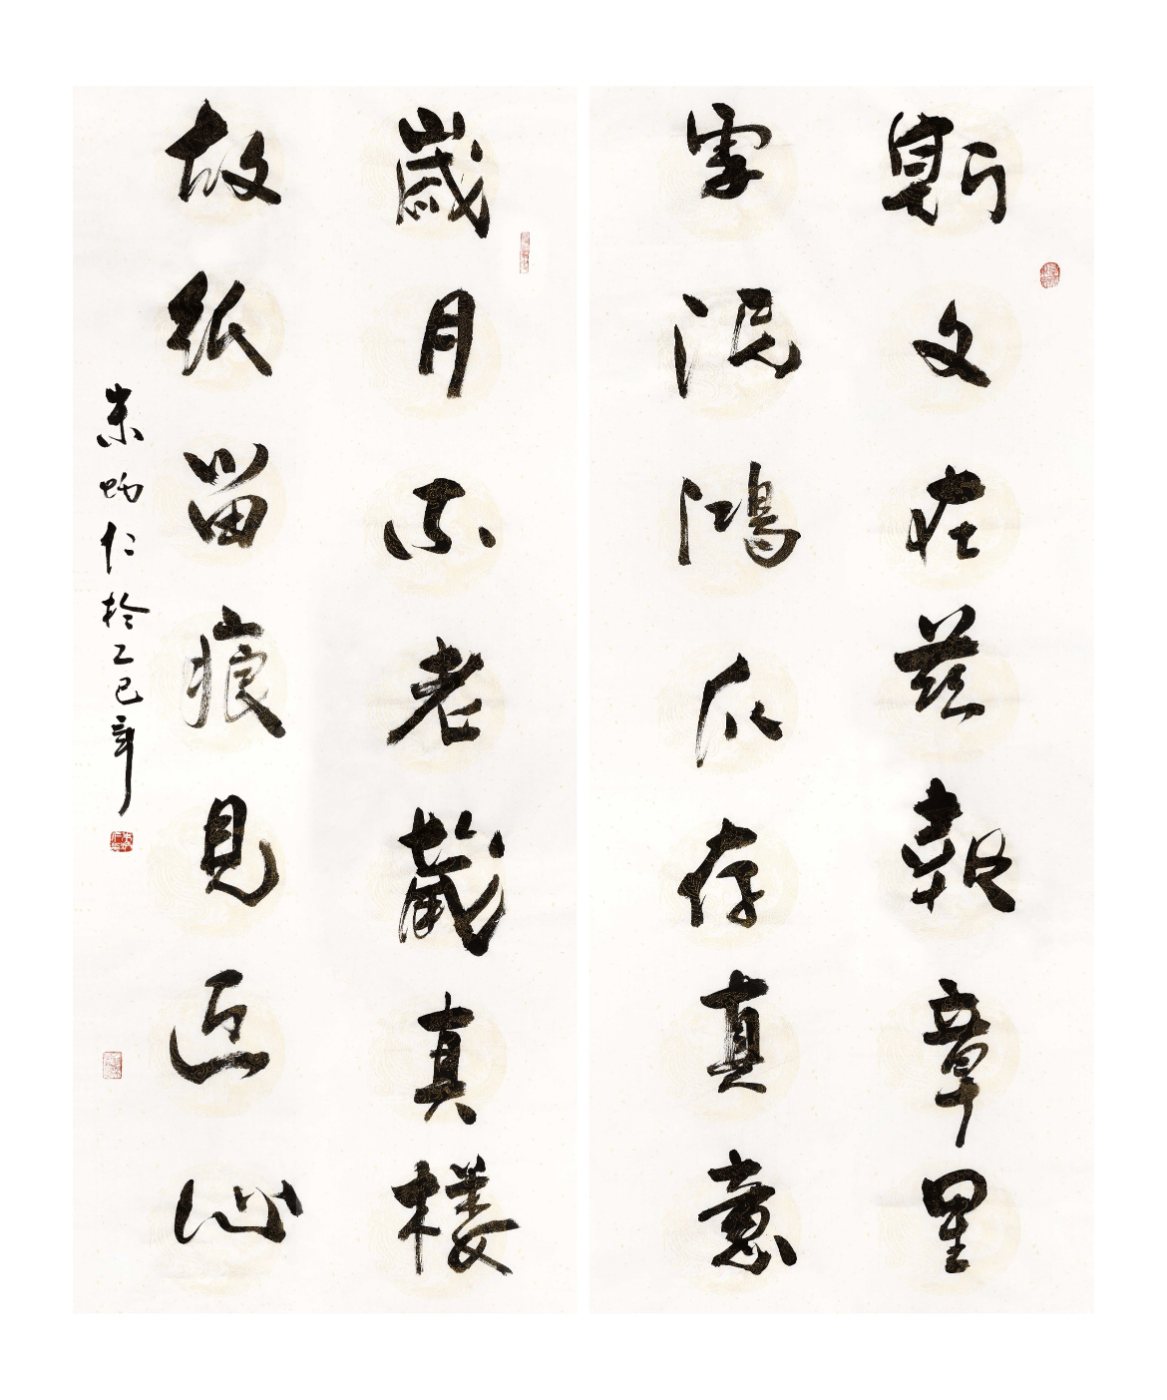 斯文在兹報章里
雪泥鴻爪存真意
歲月不老藏真楼
故紙留痕見匠心
朱炳仁於乙巳年